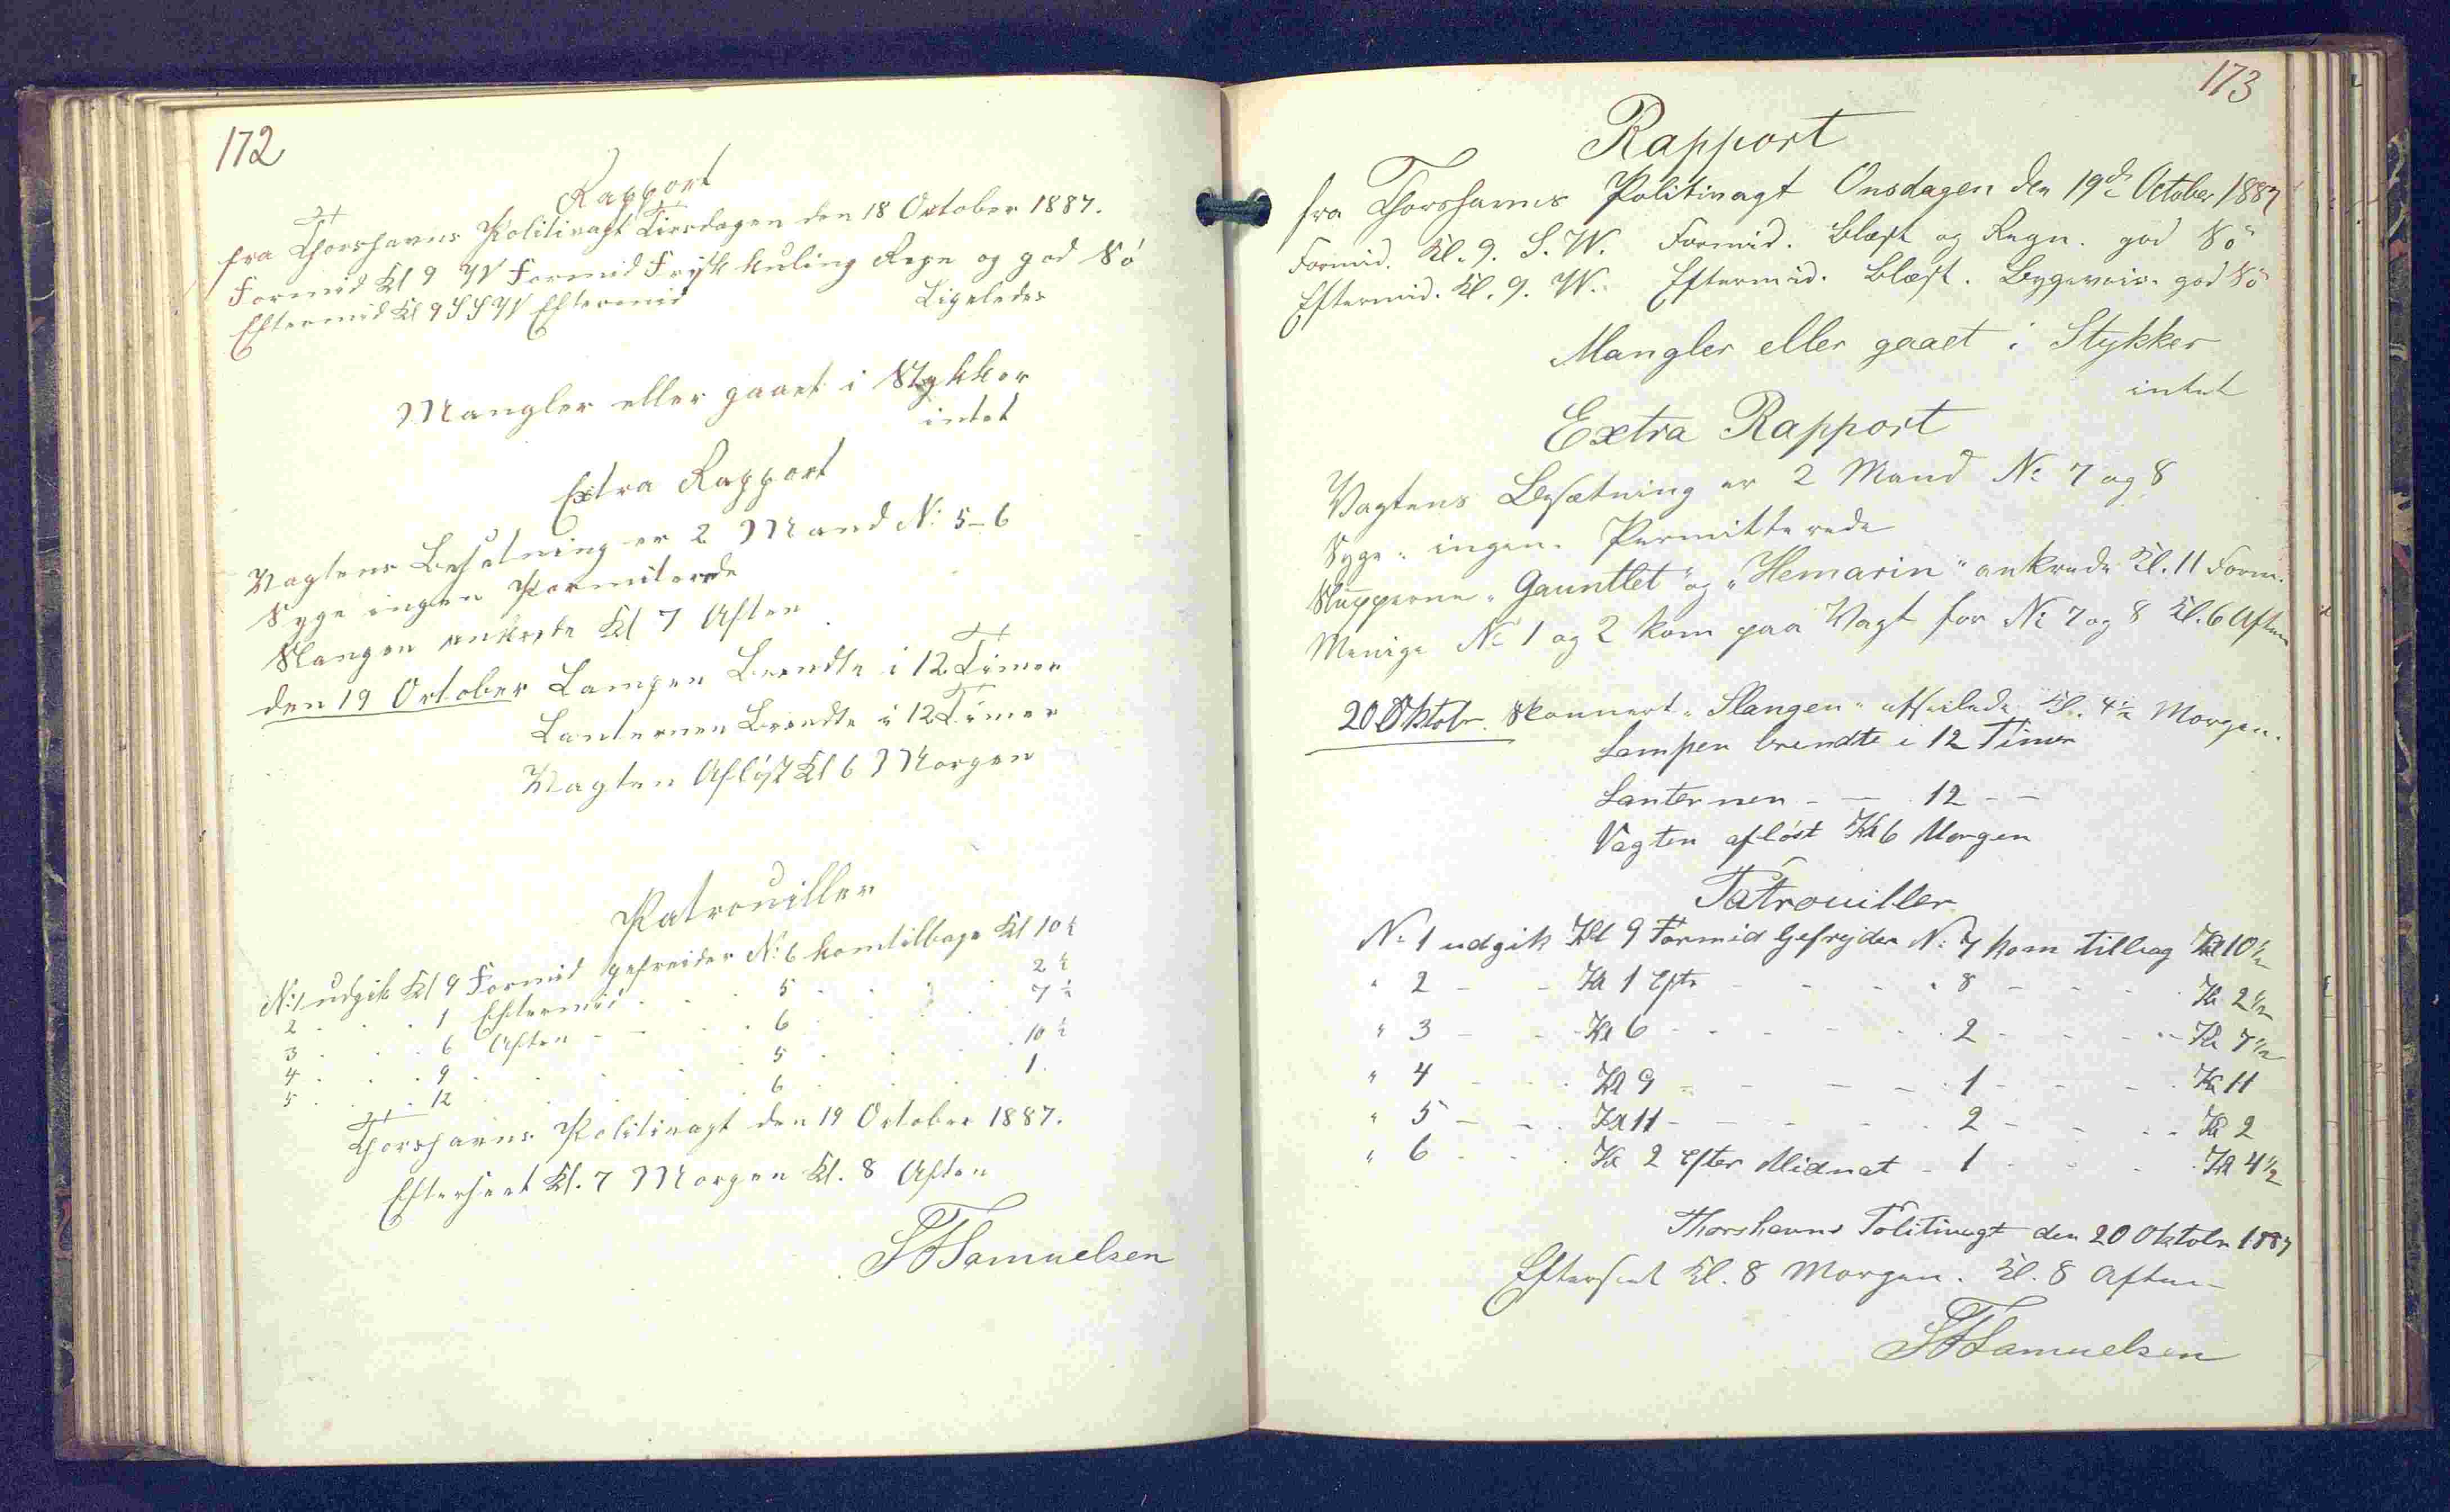 172
Rapport
fra Thorshavns Politivagt Tirsdagen den 18 October 1887.
Formid Kl 9 W Formid Frisk kuling Regn og god Sö
Eftermid Kl 9 SSW Eftermid Ligeledes
Mangler eller gaaet i Stykker
intet
Extra Rapport
Vagtens Besetning er 2 Mand N: 5-6
Syge ingen Permiterede
Slangen ankrede Kl 7 Aften
den 19 October Lampen Brendte i 12 Timer
Lanternen Brendte i 12 Timer
Vagten Aflöst Kl 6 Morgen
Patrouiller
N:1 udgik Kl 9 Formid gefreider N:6 kom tilbage Kl 10½
2 . . . 1 Eftermid . . . 5 . . . 2½
3 . . . 6 Aften - - . . 6 . . . 7½
4 . . . 9 . . . . 5 . . . 10½
5 . . . 12 . . . . 6 . . . 1.
Thorshavns Politivagt den 19 October 1887.
Efterseet Kl. 7 Morgen Kl. 8 Aften
Samuelsen
173
Rapport
fra Thorshavns Politivagt Onsdagen den 19de October 1887
Formid. Kl. 9. S.W. Formid. Blæst og Regn. god Sö
Eftermid. Kl. 9. W. Eftermid. Blæst. Bygeveir. god Sö
Mangler eller gaaet i Stykker
intet
Extra Rapport
Vagtens Besætning er 2 Mand No 7 og 8
Syge: ingen. Permitterede
Slupperne "Gauntlet" og "Hemarin" ankrede Kl. 11 Form.
Menige No 1 og 2 kom paa Vagt for No 7 og 8 Kl. 6 Aften
20 Oktobr. Skonnert "Slangen" afseilede Kl. 4½ Morgen.
Lampen brendte i 12 Timer
Lanternen - — 12 - —
Vagten aflöst Kl 6 Morgen
Patrouiller
No 1 udgik Kl 9 Formid Gefrejder No 7 kom tilbag Kl 10½
" 2 - - Kl 1 Eftr - - - " 8 - - - Kl 2½
" 3 - - Kl 6 - - - - 2 - - - Kl 7½
" 4 - - Kl 9 - - - - 1 - - - Kl 11
" 5 - - Kl 11 - - - - 2 - - - Kl 2
" 6 - - Kl 2 Efter Midnat - 1 - - - Kl 4½
Thorshavns Politivagt den 20 Oktobr 1887
Efterseet Kl. 8 Morgen. Kl. 8 Aften
Samuelsen